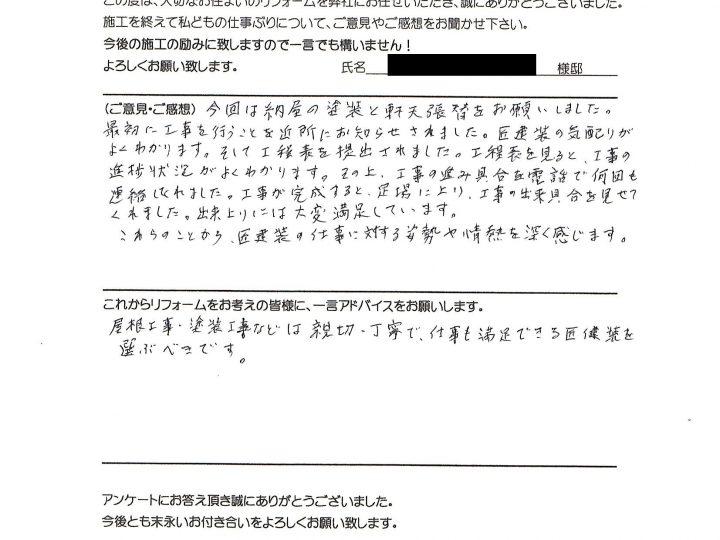 この度は、大切なお住まいのリフォームを弊社にお任せいただき、誠にありがとうございました。
施工を終えて私どもの仕事ぶりについて、ご意見やご感想をお聞かせ下さい。
今後の施工の励みに致しますので一言でも構いません!
よろしくお願い致します。 氏名 様邸
(ご意見・ご感想) 今回は納屋の塗装と軒天張替をお願いしました。
最初に工事を行うことを近所にお知らせされました。匠建装の気配りが
よくわかります。そして工程表を提出されました。工程表を見ると、工事の
進捗状況がよくわかります。その上、工事の進み具合を電話で何回も
連絡してくれました。工事が完成すると、足場に上り、工事の出来具合を見せて
くれました。出来上りには大変満足しています。
これらのことから、匠建装の仕事に対する姿勢や情熱を深く感じます。
これからリフォームをお考えの皆様に、一言アドバイスをお願いします。
屋根工事・塗装工事などは親切・丁寧で、仕事も満足できる匠建装を
選ぶべきです。
アンケートにお答え頂き誠にありがとうございました。
今後とも末永いお付き合いをよろしくお願い致します。